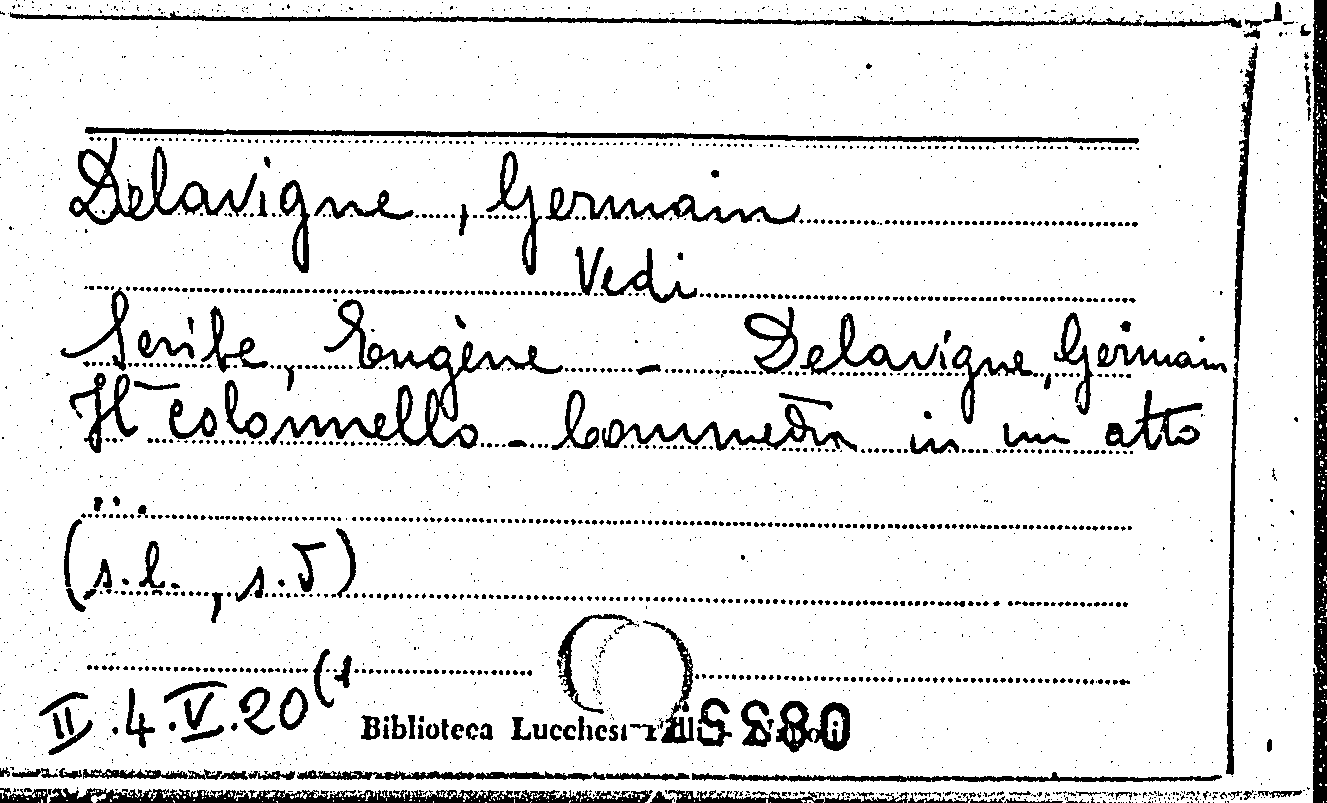 Delavigne, Germain
Vedi
Scribe, Eugène - Delavigne, Germain
Il colonnello - Commedia in un atto
...
(s.l., s.d)
II.4.V.20(1
Biblioteca Lucchesi